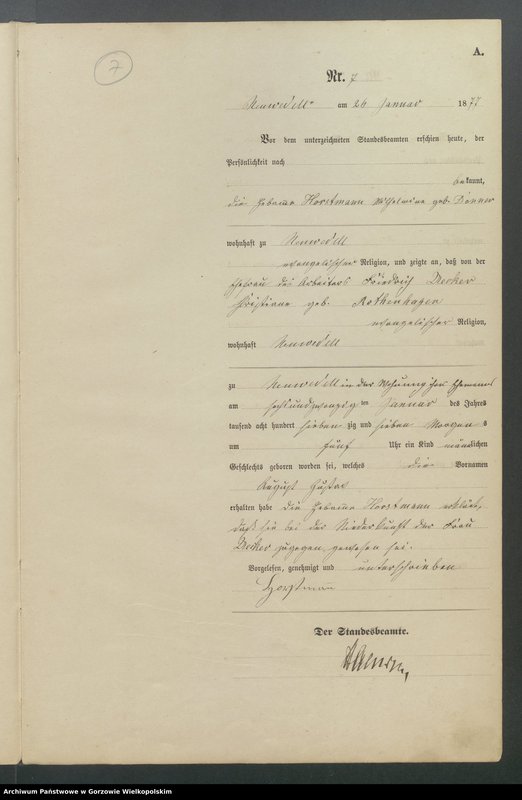 7
A.
Nr. 7
Neuwedell am 26 Januar 1877
Vor dem unterzeichneten Standesbeamten erschien heute, der
Persönlichkeit nach
bekannt,
die Hebamme Horstmann Wilhelmine geb. Dönner
wohnhaft zu Neuwedell
evangelischer Religion, und zeigte an, daß von der
Ehefrau des Arbeiters Friedrich Decker
Christiane geb. Rothenhagen
evangelischer Religion,
wohnhaft Neuwedell
zu Neuwedell in der Wohnung ihres Ehemanns
am sechsundzwanzig ten Januar des Jahres
tausend acht hundert sieben zig und sieben Morgens
um fünf Uhr ein Kind männlichen
Geschlechts geboren worden sei, welches die Vornamen
August Gustav
erhalten habe die Hebamme Horstmann erklärt,
daß sie bei der Niederkunft der Frau
Decker zugegen gewesen sei.
Vorgelesen, genehmigt und unterschrieben
Horstmann
Der Standesbeamte.
Archiwum Państwowe w Gorzowie Wielkopolskim